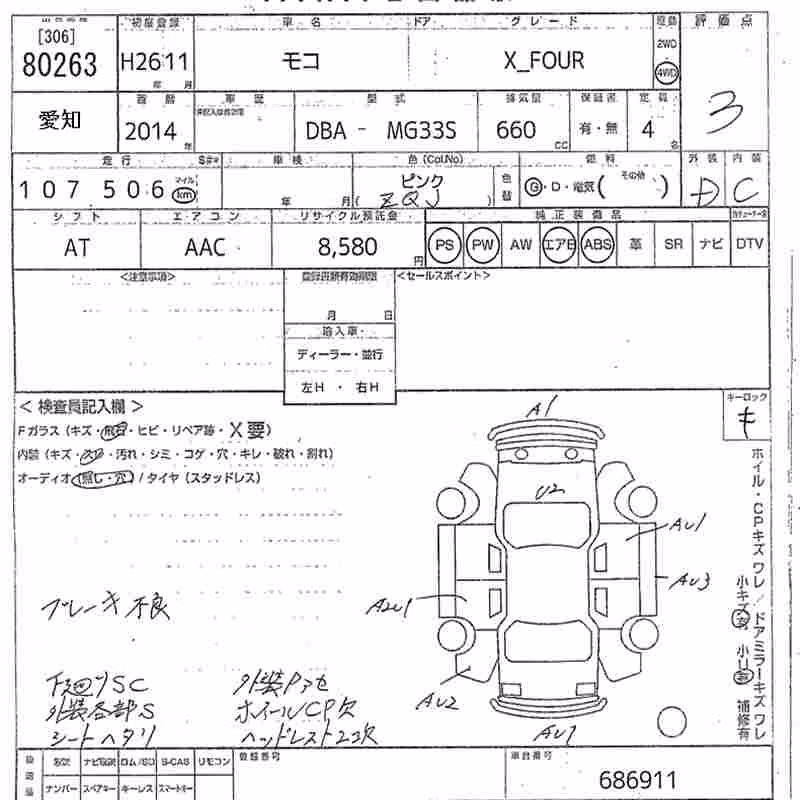 [306]
80263
初度登録 車名 ドア グレード 駆動 評価点
H26 11 年 月
モコ
X_FOUR
2WD
4WD
3
愛知
西暦 車歴 型式 排気量 保証書 定員
2014 年
DBA - MG33S
660 cc
有・無
4 名
走行 車検 色(Col.No) 燃料 外装 内装
107,506 マイル km
年 月
ピンク
( ZQJ )
色替
G・D・電気( その他 )
D C
シフト エアコン リサイクル預託金 純正装備品
AT AAC 8,580 円
PS PW AW エアB ABS 革 SR ナビ DTV
<注意事項> 登録書類有効期限 <セールスポイント>
月 日
輸入車
ディーラー・並行
左H ・ 右H
< 検査員記入欄 >
キーロック
キ
Fガラス(キズ・飛石・ヒビ・リペア跡・X要)
内装(キズ・スレ・汚れ・シミ・コゲ・穴・キレ・破れ・割れ)
オーディオ(無し・穴)/タイヤ(スタッドレス)
A1
U2
AU1
AU3
A2U1
AU2
AU1
ブレーキ不良
下廻りSC 外装Pアセ
外装各部S ホイールCP欠
シートヘタリ ヘッドレスト2コ欠
ホイル・CPキズワレ/ドアミラーキズワレ
小キズ有 小U有 補修有
登録番号 車台番号
記録 ナビ取説 ロム/SD S-CAS リモコン
ナンバー スペアキー キーレス スマートキー
686911